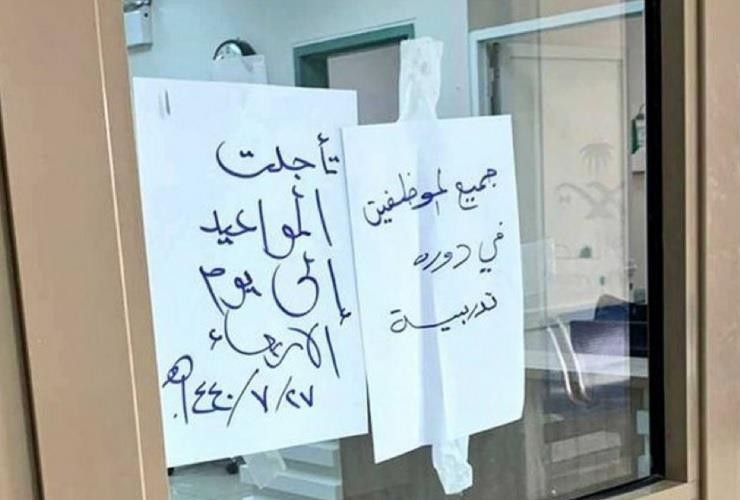 جميع الموظفين
في دوره
تدربية
تأجلت
المواعيد
الى يوم
الأربعاء
٢٧/٧/١٤٤٠هـ